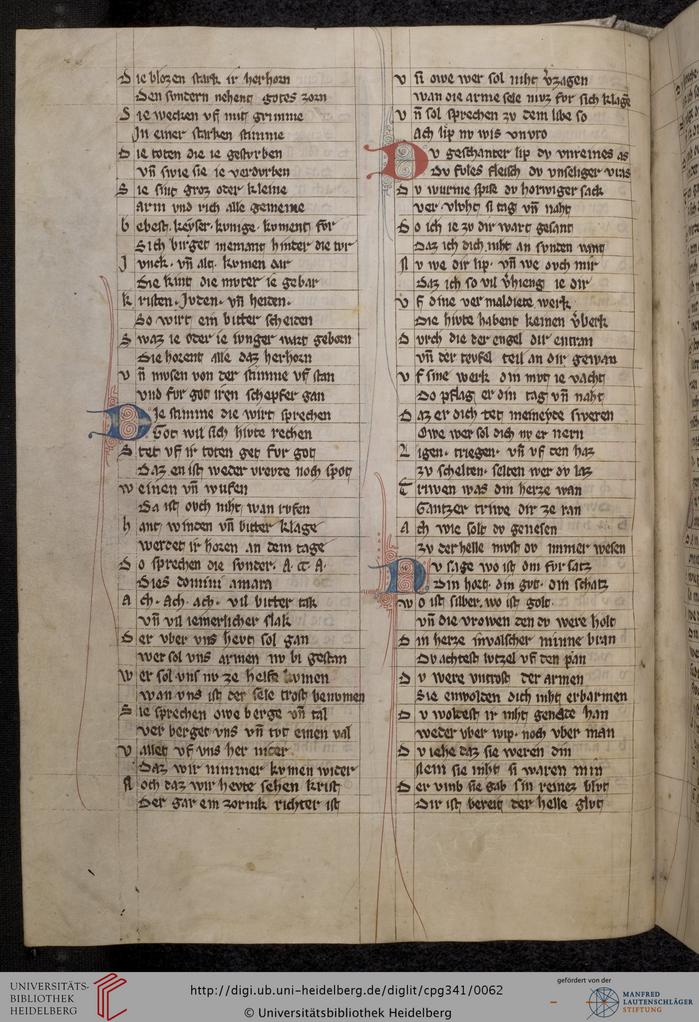 D ie blozen stark ir herhorn
Den sondern nehent gotes zorn
S ie wecken vf mit grimme
Jn einer starken stimme
D ie toten die ie gesturben
Vn̄ swie sie ie verdurben
S ie sint groz oder kleine
Arm vnd rich alle gemeine
b ebest. keyser. kunige. kument for
Sich birget niemant hinter die tor
J unck. vn̄ alt. kumen dar
Die kint die muter ie gebar
k risten. Juden. vn̄ heiden.
So wirt ein bitter scheiden
S waz ie oder ie iunger wart geborn
Die horent alle daz herhorn
V n̄ musen von der stimme vf stan
Vnd fur got iren schepfer gan
D Je stimme die wirt sprechen
Got wil sich hivte rechen
S tet vf ir toten get fur got
Daz en ist weder vrevde noch spot
w einen vn̄ wufen
Da ist ovch niht wan rufen
h ant winden vn̄ bitter klage
Werdet ir horen an dem tage
S o sprechen die sunder. A. A A.
Dies domini amara
A ch. Ach. ach. vil bitter tak
Vn̄ vil iemerlicher slak
D er vber vns hevt sol gan
Wer sol vns armen nv bi gestan
W er sol vns nv ze helfe kumen
Wan vns ist der sele trost benumen
S ie sprechen owe berge vn̄ tal
Ver berget vns vn̄ tvt einen val
V allet vf vns her nider
Daz wir nimmer kumen wider
N och daz wir hevte sehen krist
Der gar ein zornik richter ist
V n̄ owe wer sol niht v̓zagen
Wan die arme sele mvz for sich klagē
V n̄ sol sprechen zv dem libe so
Ach lip nv wis vnvro
D v geschanter lip dv vnreines as
Dv fules fleisch dv vnseliger vras
D v wurme spise dv horwiger sack
Ver vlvht si tag vn̄ naht
D o ich ie zv dir wart gesant
Daz ich dich niht an sunden vant
N v we dir lip. vn̄ we ovch mir
Daz ich so vil v̓hieng ie dir
V f dine ver maldiete werk
Die hivte habent keinen v̓berk
D vrch die der engel dir entran
Vn̄ der tevfel teil an dir gewan
V f sine werk din mvt ie vacht
Do pflag er din tag vn̄ naht
D az er dich tet meineyde sweren
Owe wer sol dich nv er nern
L igen. triegen. vn̄ vf den haz
zv schelten. selten wer dv laz
T riwen was din herze wan
Gantzer triwe dir ze ran
A ch wie solt dv genesen
zv der helle mvst dv immer wesen
N v sage wo ist din fur satz
Din hort. din gvt. din schatz
w o ist silber. wo ist golt.
Vn̄ die vrowen den dv were holt
D in herze in valscher minne bran
Dv achtest lvtzel vf den pan
D v were vntrost der armen
Sie enwolden dich niht erbarmen
D v woldest ir niht genade han
Weder vber wip. noch vber man
D v iehe daz sie weren din
Nein sie niht si waren min
D er vmb sie gab sin reinez blvt
Dir ist bereit der helle glvt
UNIVERSITÄTS-
BIBLIOTHEK
HEIDELBERG
http://digi.ub.uni-heidelberg.de/diglit/cpg341/0062
© Universitätsbibliothek Heidelberg
gefördert von der
MANFRED
LAUTENSCHLÄGER
STIFTUNG